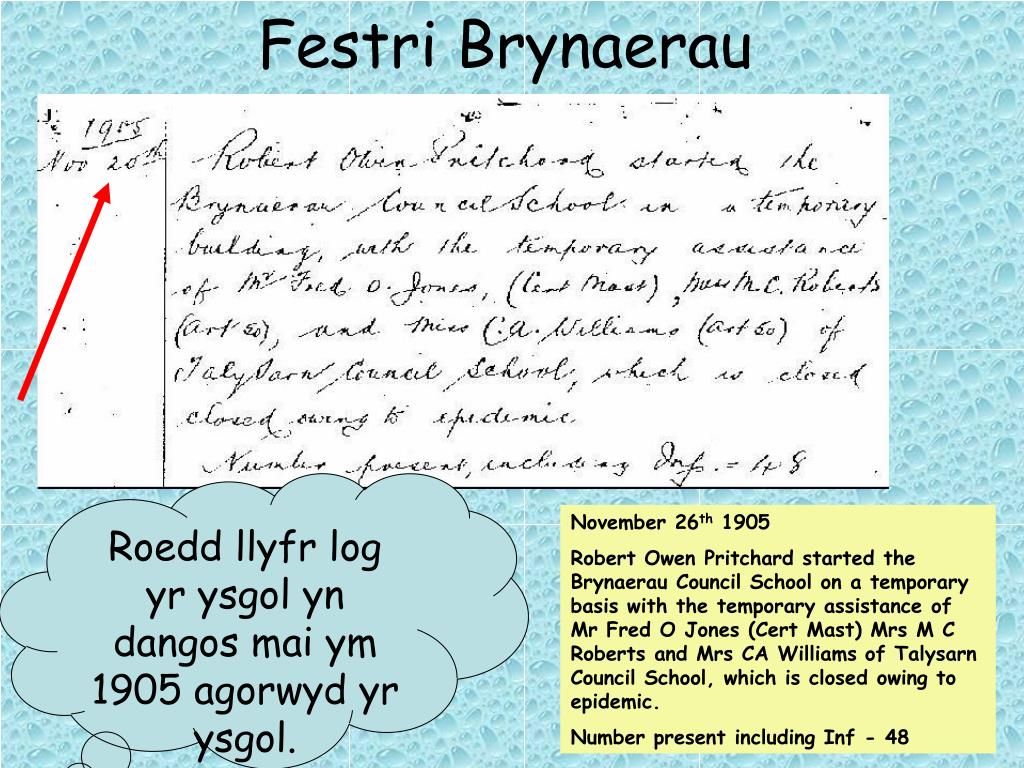 Festri Brynaerau
1905
Nov 20th
Robert Owen Pritchard started the
Brynaerau Council School in a temporary
building, with the temporary assistance
of Mr Fred O. Jones, (Cert Mast), Miss M.C. Roberts
(Art 50), and Miss C.A. Williams (Art 50) of
Talysarn Council School, which is closed
closed owing to epidemic.
Number present, including Inf. = 48
Roedd llyfr log
yr ysgol yn
dangos mai ym
1905 agorwyd yr
ysgol.
November 26th 1905
Robert Owen Pritchard started the
Brynaerau Council School on a temporary
basis with the temporary assistance of
Mr Fred O Jones (Cert Mast) Mrs M C
Roberts and Mrs CA Williams of Talysarn
Council School, which is closed owing to
epidemic.
Number present including Inf - 48